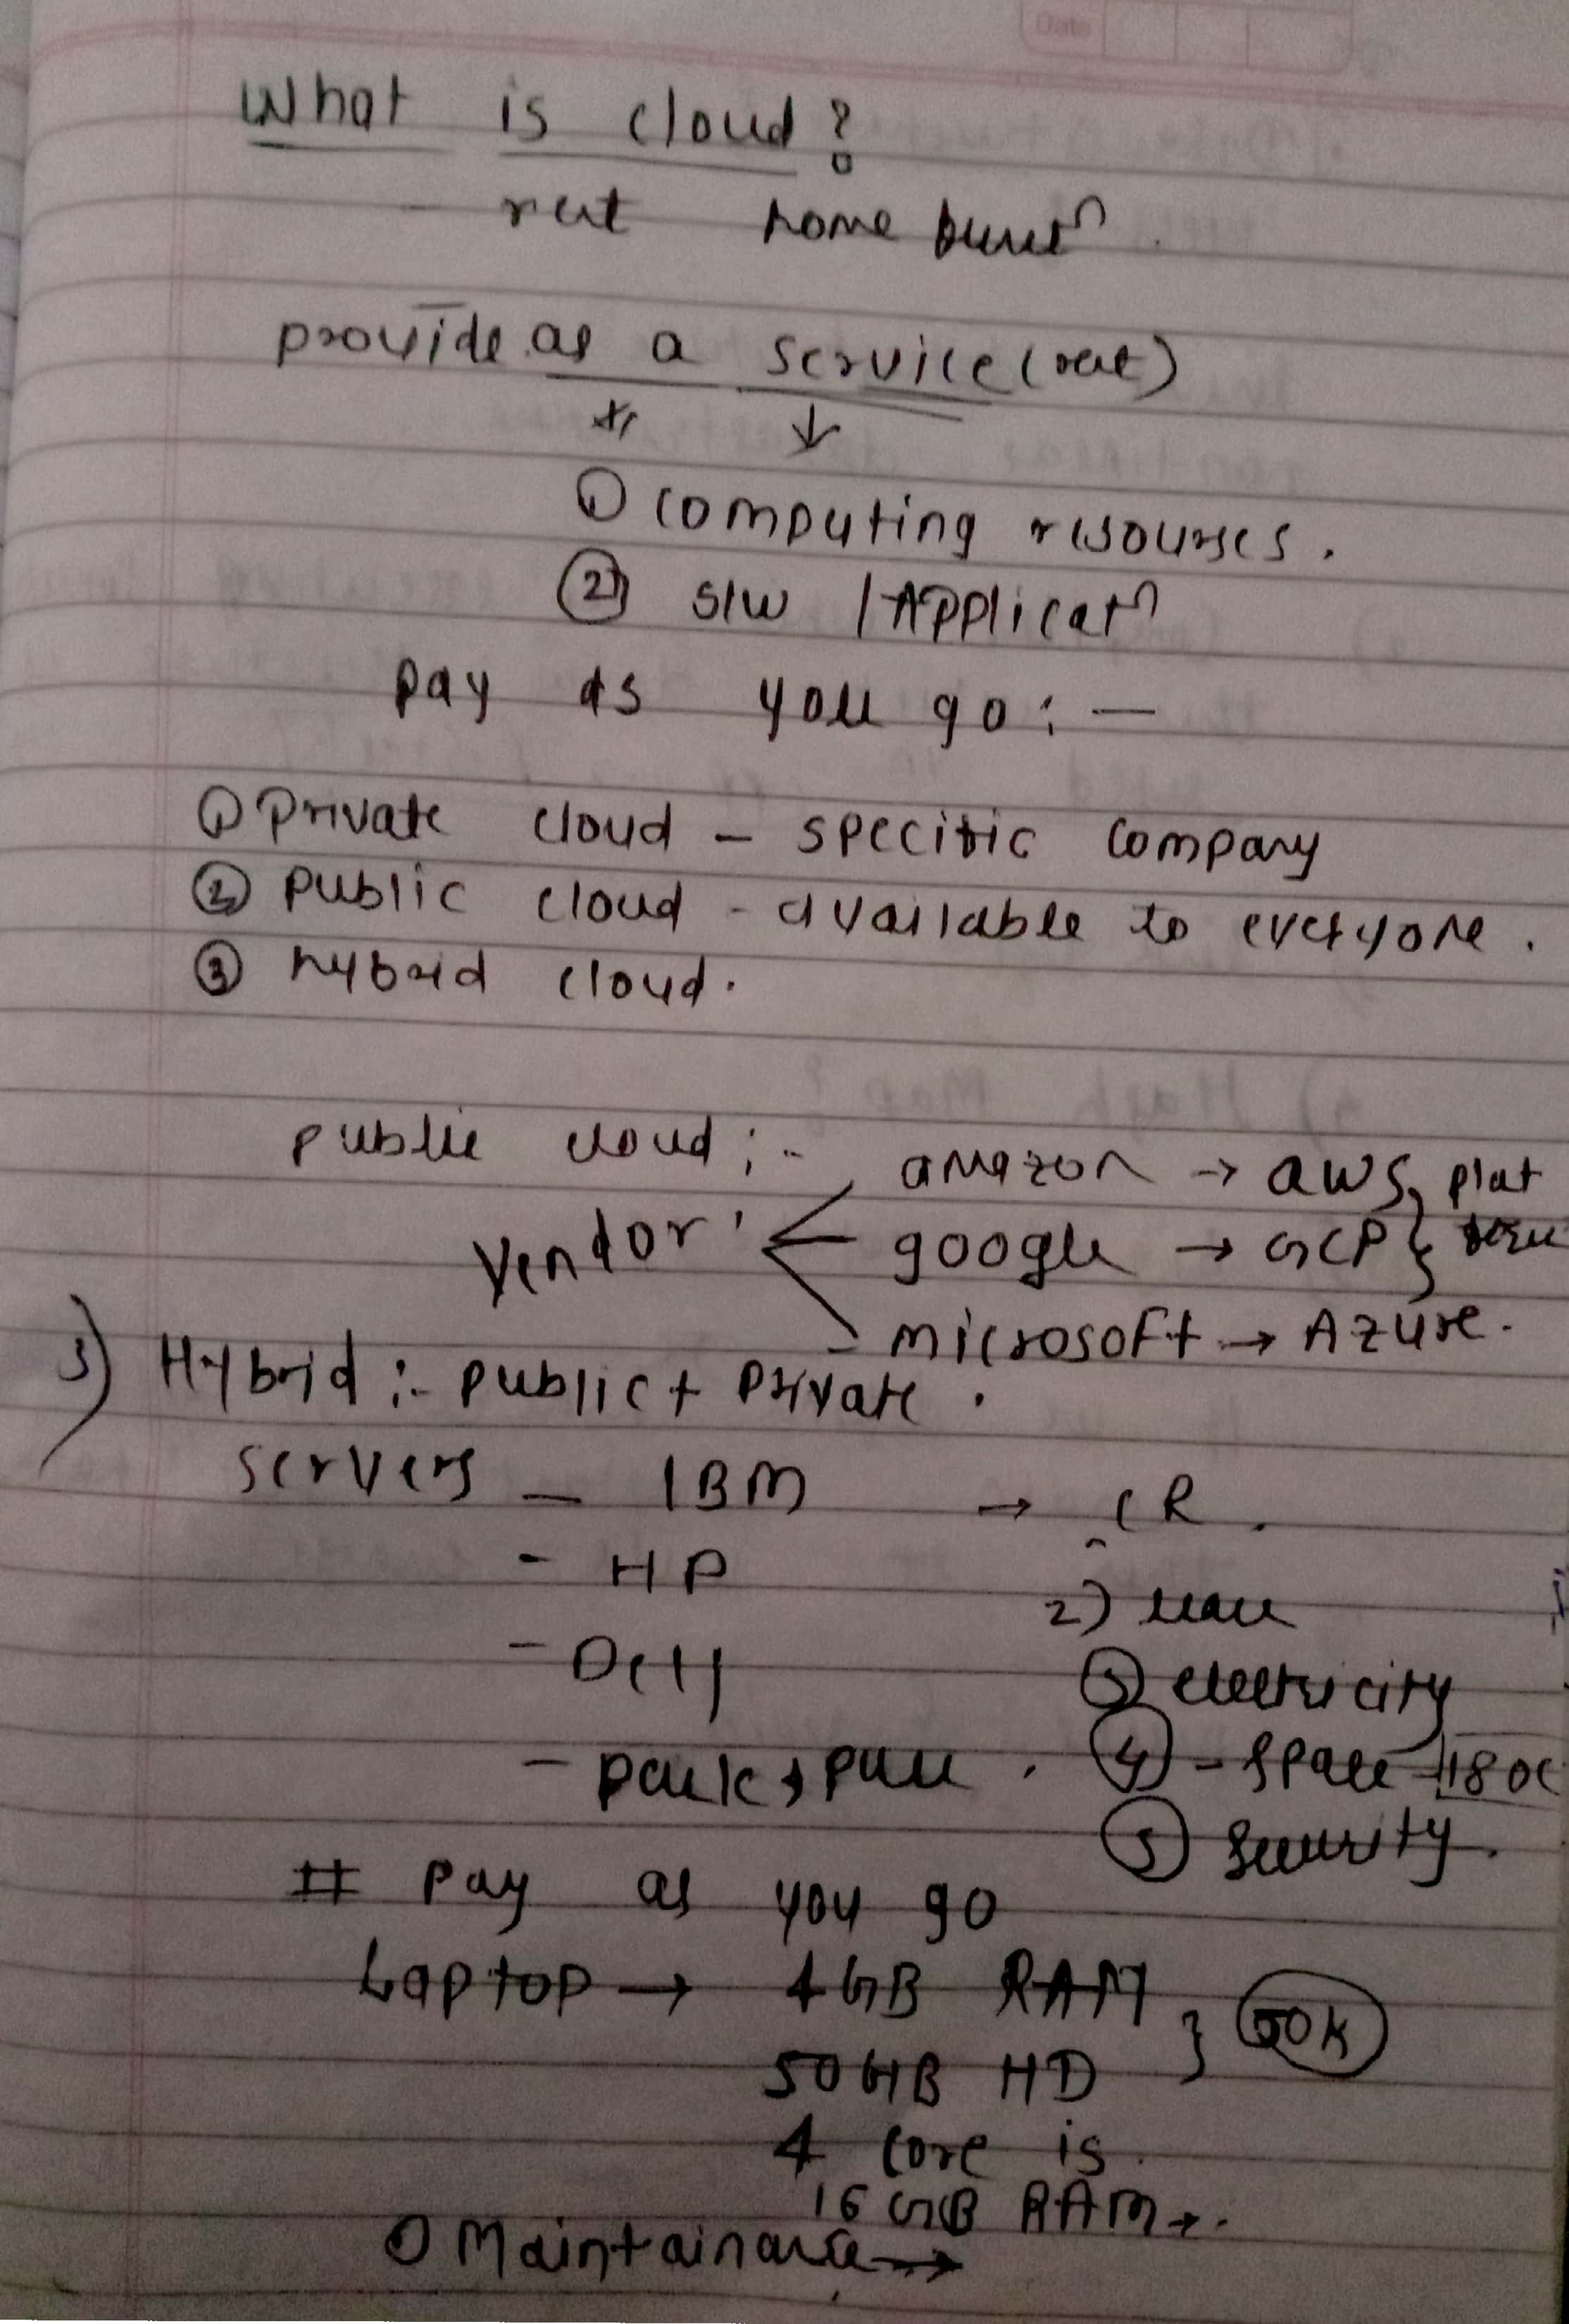 Date
What is cloud?
- rent home
provide as a service (rent)
↓
① computing resourses.
② s/w / Applicatn
pay as you go : —
① Private cloud - specific company
② public cloud - available to everyone.
③ hybrid cloud.
public cloud :-
amazon → aws, plat
Vendor : google → GCP }
microsoft → Azure.
3) Hybrid :- public + private.
servers - IBM → CR.
- HP
2)
- Dell
③ electricity
- ④ - space
⑤ security.
# pay as you go
Laptop → 4GB RAM
} 50K
50GB HD
4 core i5
16 GB RAM →.
① Maintainance →